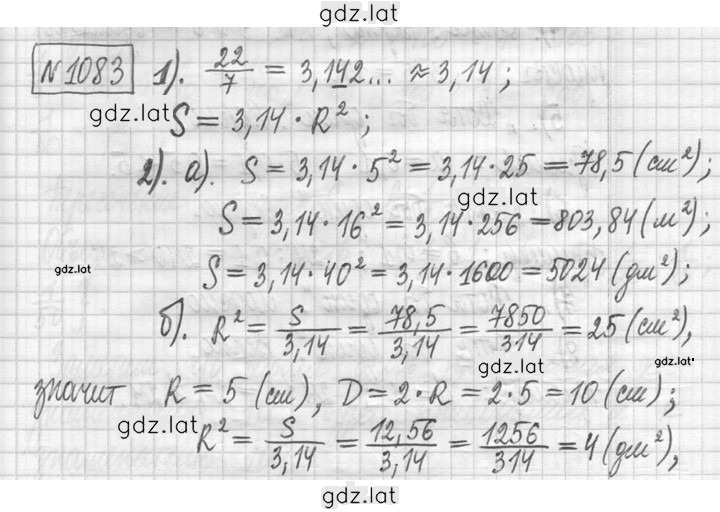 gdz.lat
№1083 1). 22/7 = 3,142... ≈ 3,14;
gdz.lat S = 3,14 · R²;
2). а). S = 3,14 · 5² = 3,14 · 25 = 78,5 (см²);
gdz.lat
S = 3,14 · 16² = 3,14 · 256 = 803,84 (м²);
gdz.lat S = 3,14 · 40² = 3,14 · 1600 = 5024 (дм²);
б). R² = S/3,14 = 78,5/3,14 = 7850/314 = 25 (см²),
gdz.lat gdz.lat
значит R = 5 (см), D = 2 · R = 2 · 5 = 10 (см);
gdz.lat R² = S/3,14 = 12,56/3,14 = 1256/314 = 4 (дм²),
gdz.lat